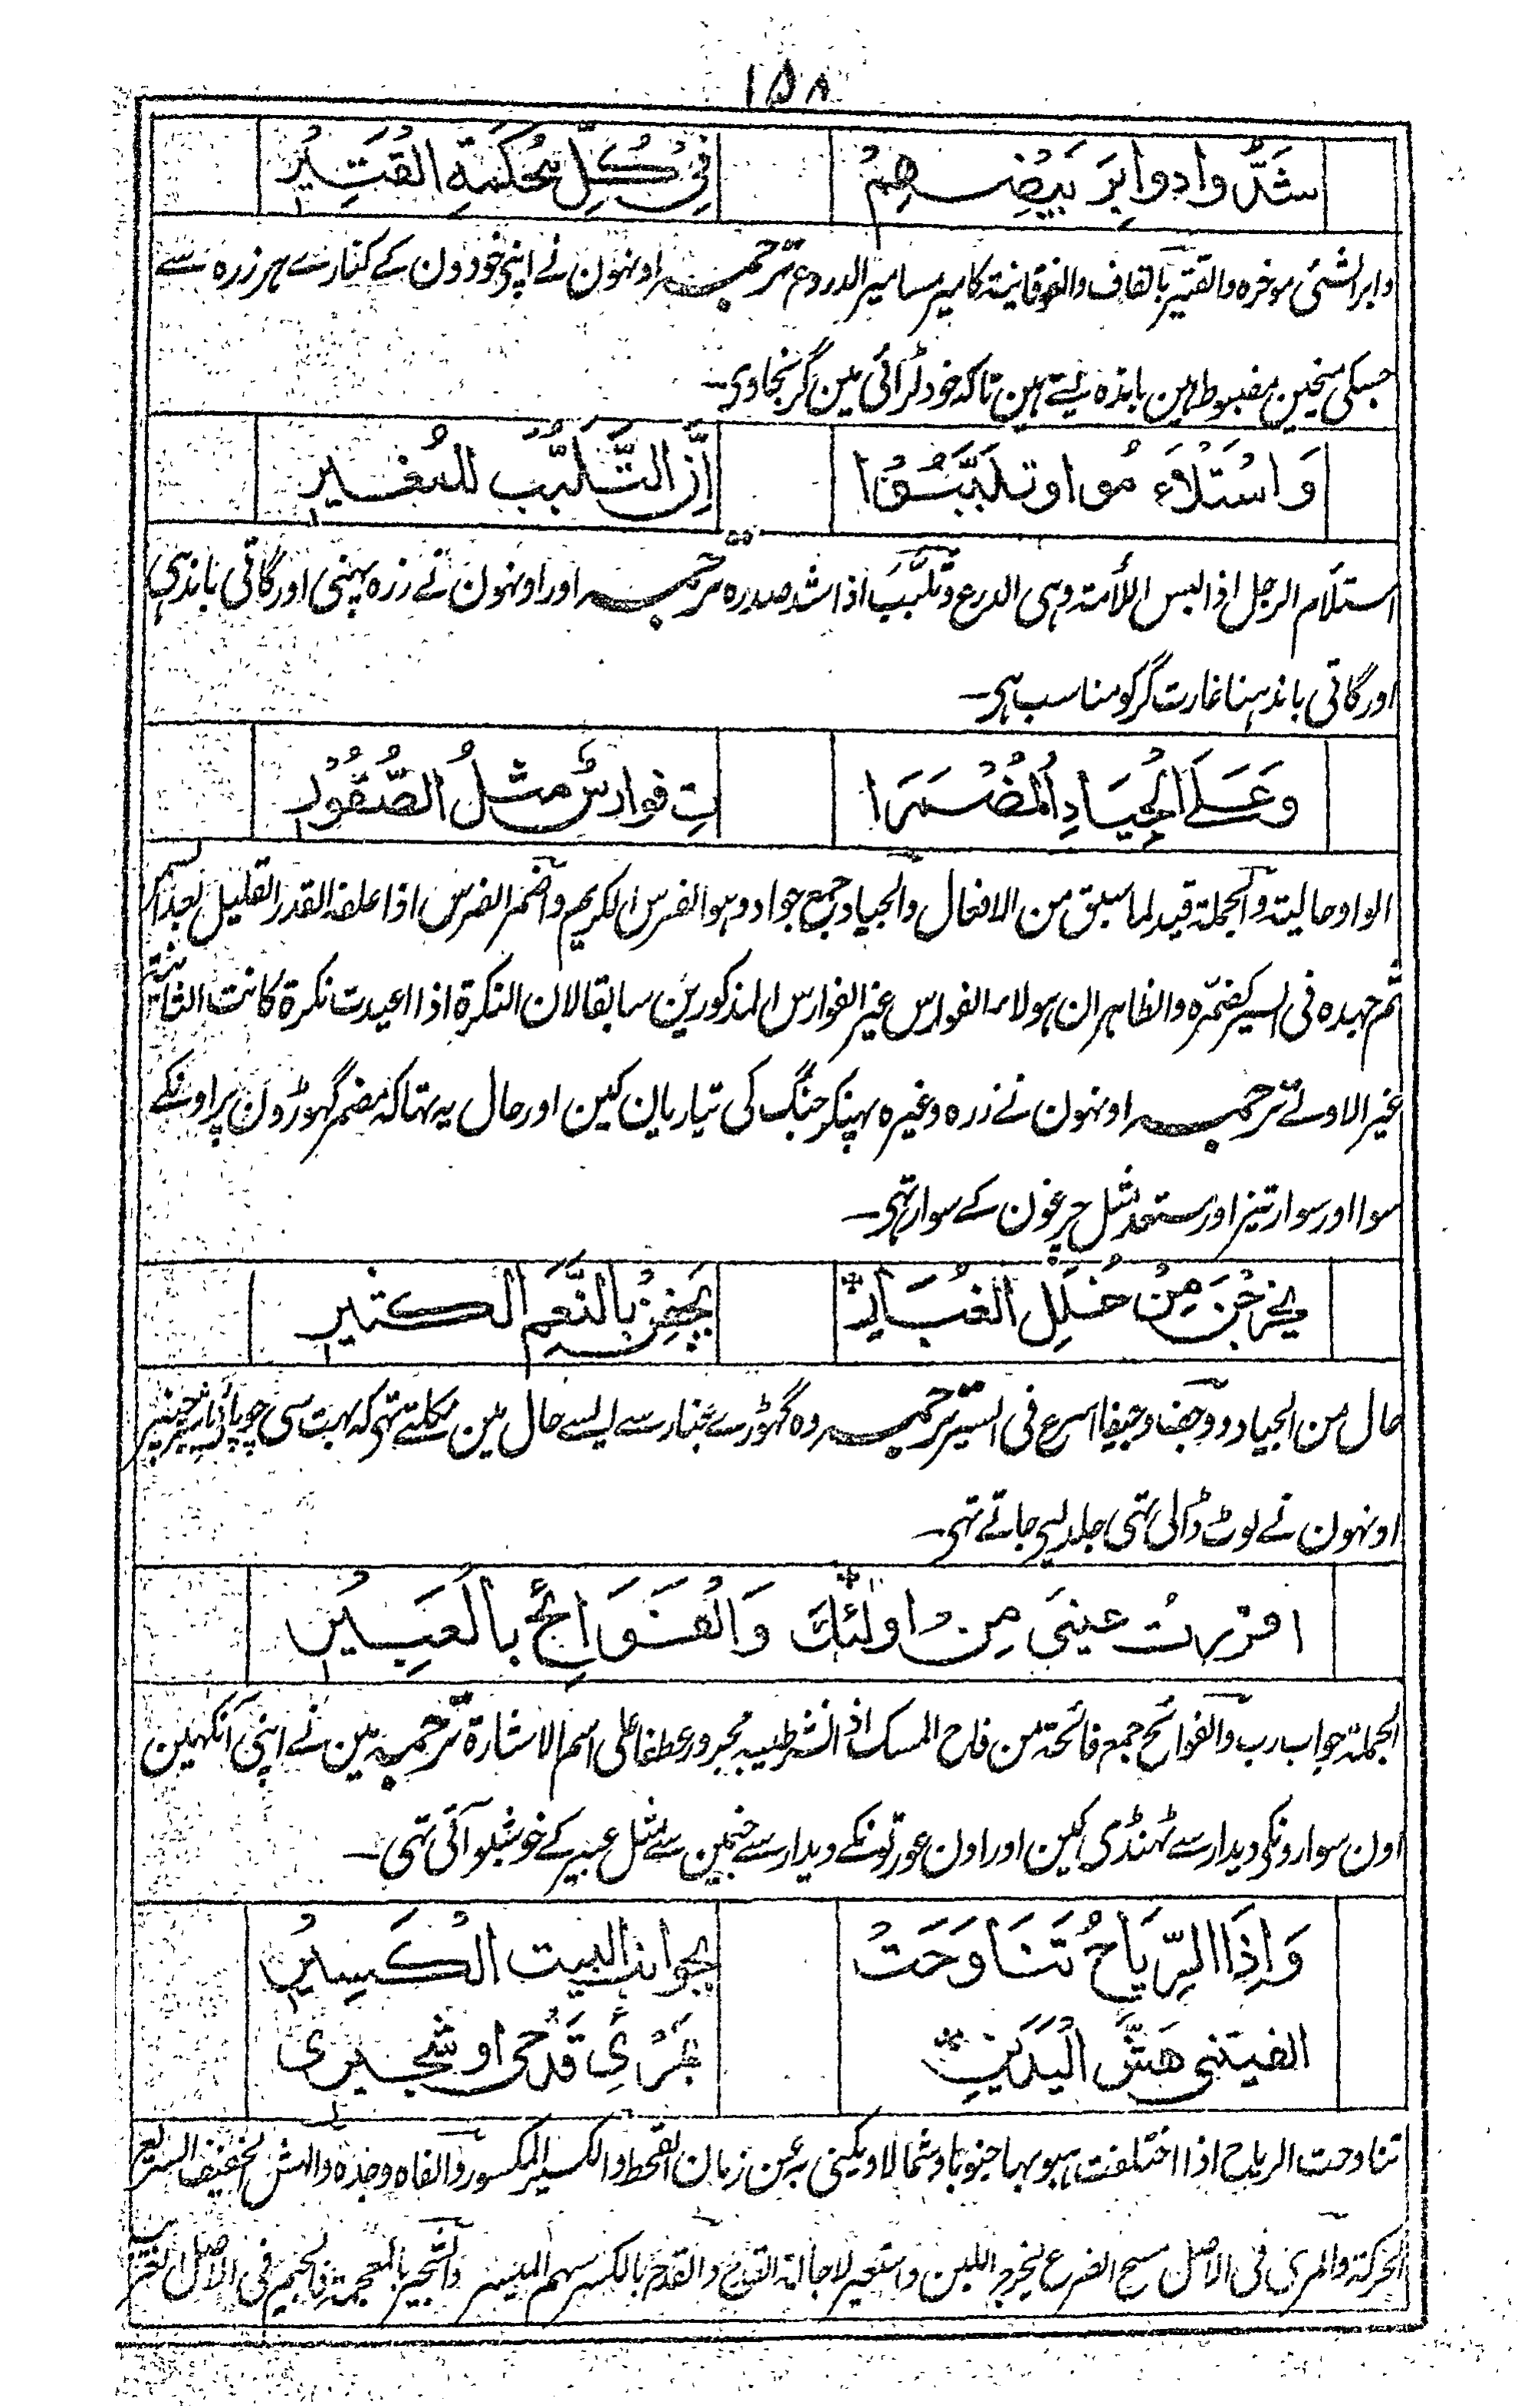 ۱۵۸
شَدُّوا دوابِرَ بَيْضِهِمْ فِي كُلِّ مُحْكَمَةِ القَتِيْرِ
دابر الشئ موخره والقتیر بالقاف والفوقانیة کامیر مسامیر الدروع ترجمہ اونہون نے اپنی خودون کے کنارے ہر زرہ سے
جسکی میخین مضبوط ہین باندہ لیتے ہین تاکہ خود لڑائی مین گر نجاوی۔
وَاسْتَلْأَمُوا وتَلَبَّبُوْا اِنَّ التَّلَبُّبَ للمُغِيْرِ
استلأم الرجل اذا لبس اللأمة وہی الدرع وتلبب اذا شد صدرہ ترجمہ اور اونہون نے زرہ پہنی اور گاتی باندہی
اور گاتی باندہنا غارت گر کو مناسب ہی۔
وَعَلَى الجِيَادِ المُضْمَرَا تِ فوارسٌ مثلُ الصُّقُوْرِ
الواو حالیتہ والجملة قید لما سبق من الافعال والجیاد جمع جواد وہو الفرس الکریم واضمر الفرس اذا علفہ القدر القلیل بعد السمن
ثم جہدہ فی السیر کضمّرہ والظاہر ان ہولاء الفوارس غیر الفوارس المذکورین سابقا لان النکرة اذا اعیدت نکرة کانت الثانیة
غیر الاولے ترجمہ اونہون نے زرہ وغیرہ پہنکر جنگ کی تیاریان کین اور حال یہ تہا کہ مضمر گہوڑون پر اونکے
سوا اور سوار تیز اور مستعد مثل چرغون کے سوار تہی۔
يَخْرُجْنَ مِنْ خَلَلِ الغُبَارِ يَجِفْنَ بالنَّعَمِ الكثيرِ
حال من الجیاد ووجف وجیفا اسرع فی السیر ترجمہ وہ گہوڑے غبار سے ایسے حال مین نکلتے تہی کہ بہت سی چوپائی جنپر
اونہون نے لوٹ ڈالی تہی جلد لیے جاتے تہی۔
اقررتُ عينی مِن اولئِكَ وَالْفَوَائِحِ بالعَبِيْرِ
الجملة جواب رب والفوائح جمع فائحة من فاح المسک اذا انتشر طیبہ مجرور عطفا علی اسم الاشارة ترجمہ مین نے اپنی آنکہین
اون سوارونکی دیدار سے ٹہنڈی کین اور اون عورتونکے دیدار سے جنمین سے مثل عبیر کے خوشبو آتی تہی۔
وَاِذَا الرِّيَاحُ تَنَاوَحَتْ بجوانب البيت الكَسِيْرِ
الفيتنی هَشَّ اليَدَيْنِ بِمَرْیِ قَدْحی او شجيری
تناوحت الریاح اذا اختلفت ہبوبہا جنوبا وشمالا ویکنی بہ عن زمان القحط والکسیر المکسور والفاہ وجدہ والہش الخفیف السریع
الحرکة والمری فی الاصل مسح الضرع لیخرج اللبن واستعیر لاجالة القداح والقدح بالکسر سہم المیسر والشجیر بالمعجمة والجیم فی الاصل الغریب